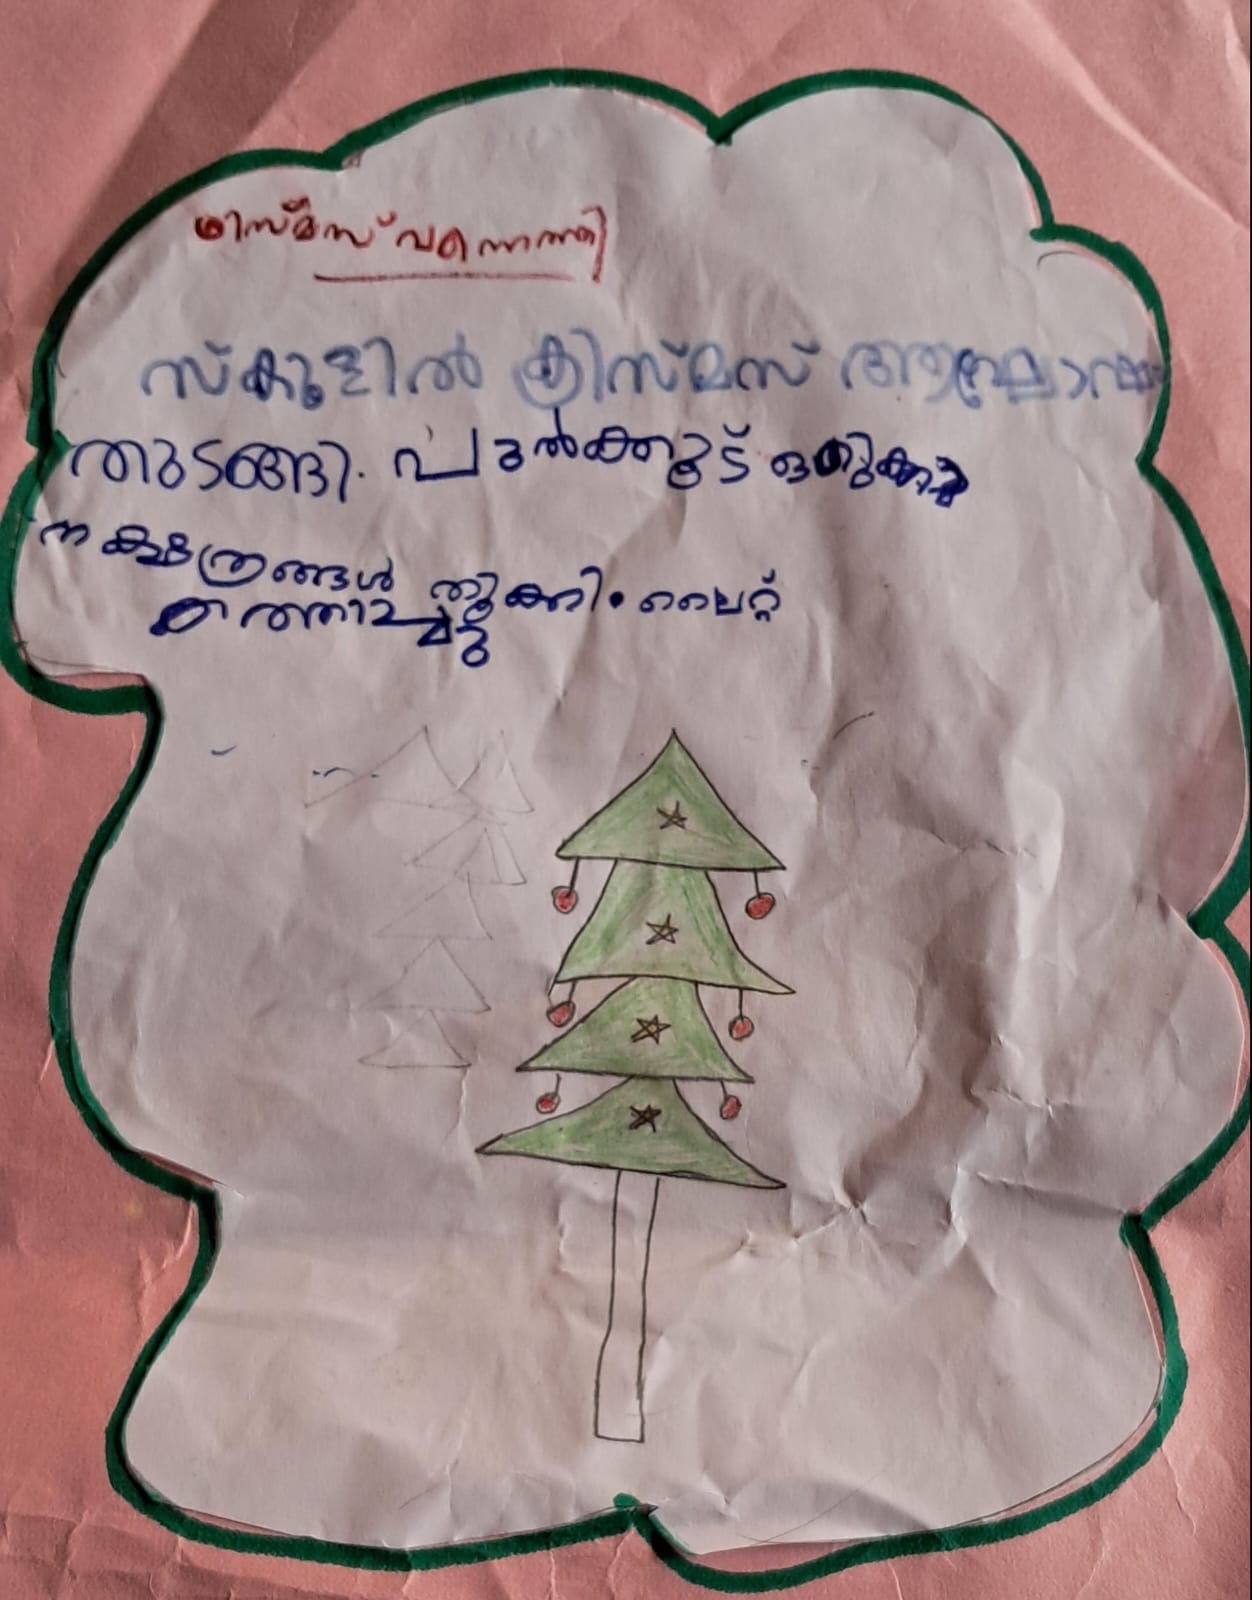 ക്രിസ്മസ് വന്നെത്തി
സ്കൂളിൽ ക്രിസ്മസ് ആഘോഷം
തുടങ്ങി. പുൽക്കൂട് ഒരുക്കി
നക്ഷത്രങ്ങൾ തൂക്കി. ലൈറ്റ്